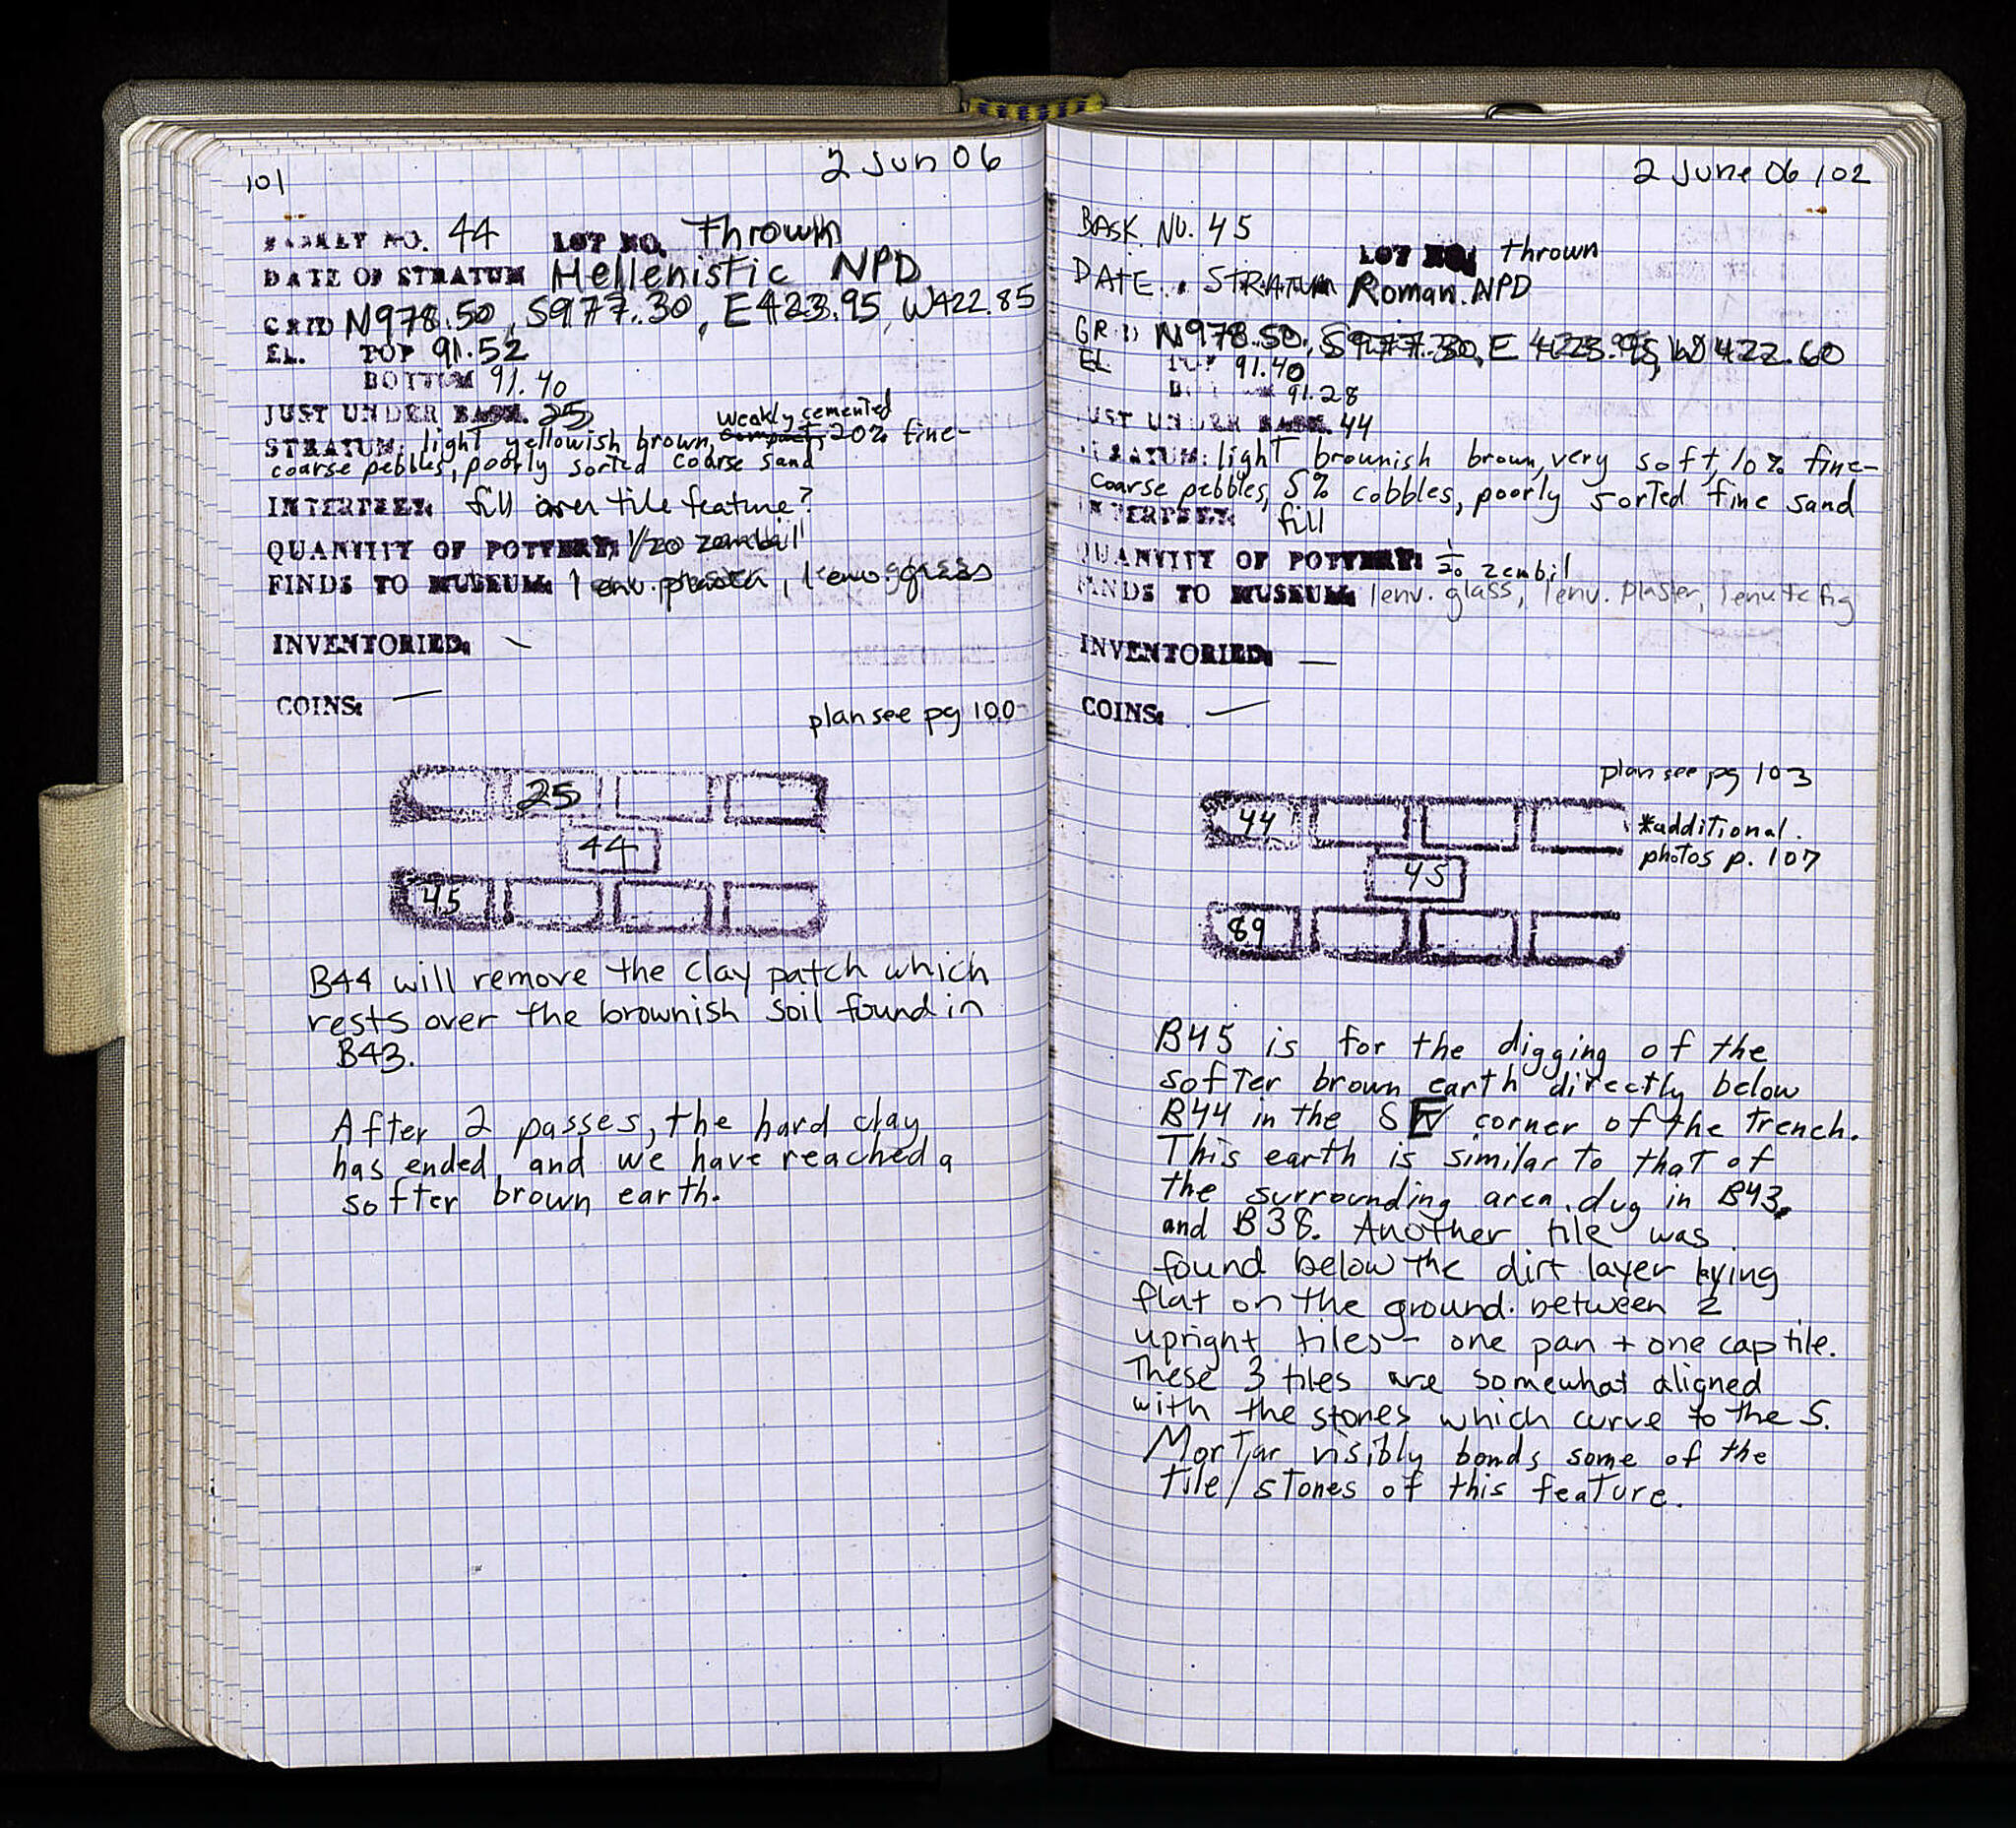 101
2 Jun 06
BASKET NO. 44 LOT NO. Thrown
DATE OF STRATUM Hellenistic NPD
GRID N978.50, S977.30, E423.95, W422.85
EL. TOP 91.52
BOTTOM 91.40
JUST UNDER BASK. 25
weakly cemented
STRATUM: light yellowish brown, compact, 20% fine-
coarse pebbles, poorly sorted coarse sand
INTERPRET: fill over tile feature?
QUANTITY OF POTTERY: 1/20 zembil
FINDS TO MUSEUM: 1 env. 1 env. glass
INVENTORIED: -
COINS: —
plan see pg 100
25
44
45
B44 will remove the clay patch which
rests over the brownish soil found in
B43.
After 2 passes, the hard clay
has ended, and we have reached a
softer brown earth.
2 June 06 102
BASK. NO. 45
LOT NO. thrown
DATE. STRATUM Roman. NPD
GRID N978.50, S977.30, E 423.95, W422.60
EL TOP 91.40
BOTTOM 91.28
JUST UNDER BASK. 44
STRATUM: light brownish brown, very soft, 10% fine-
coarse pebbles, 5% cobbles, poorly sorted fine sand
INTERPRET: fill
QUANTITY OF POTTERY: 1/20 zembil
FINDS TO MUSEUM: 1 env. glass, 1 env. plaster, 1 env tc fig
INVENTORIED: —
COINS: —
plan see pg 103
*additional
photos p. 107
44
45
89
B45 is for the digging of the
softer brown earth directly below
B44 in the SE corner of the trench.
This earth is similar to that of
the surrounding area dug in B43,
and B38. Another tile was
found below the dirt layer lying
flat on the ground between 2
upright tiles - one pan + one cap tile.
These 3 tiles are somewhat aligned
with the stones which curve to the S.
Mortar visibly bonds some of the
tile/stones of this feature.